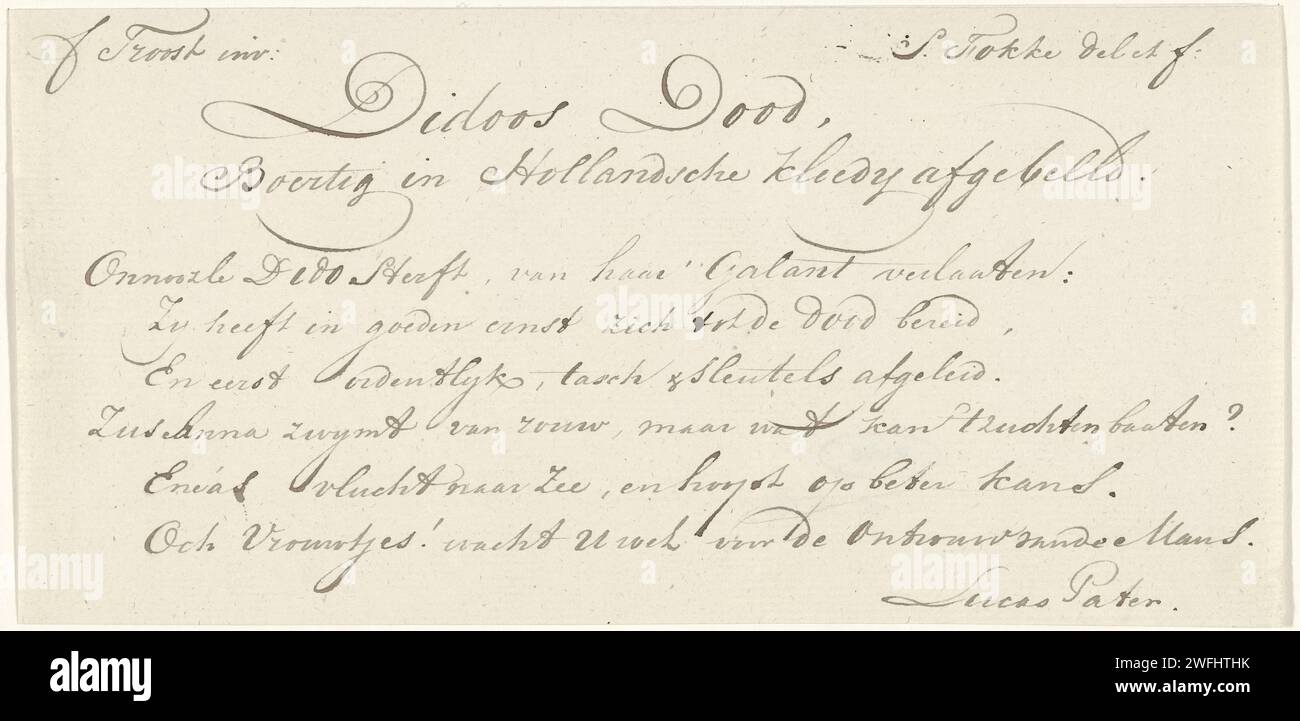 Troost inv: S. Fokke del et f:
Didoos Dood,
Boertig in Hollandsche kleedy afgebeeld.
Onnoozle Dido Sterft, van haar Galant verlaaten:
Zy heeft in goeden ernst zich tot de dood bereid,
En eerst ordentlyk, tasch & Sleutels afgeleid.
Zus Anna zwymt van rouw, maar wat kan 't zuchten baaten?
Eneas vlucht naar Zee, en hoopt op beter kans.
Och Vrouwtjes! wacht U wel voor de Ontrouw van de Mans.
Lucas Pater.
alamy
Image ID: 2WFHTHK
www.alamy.com